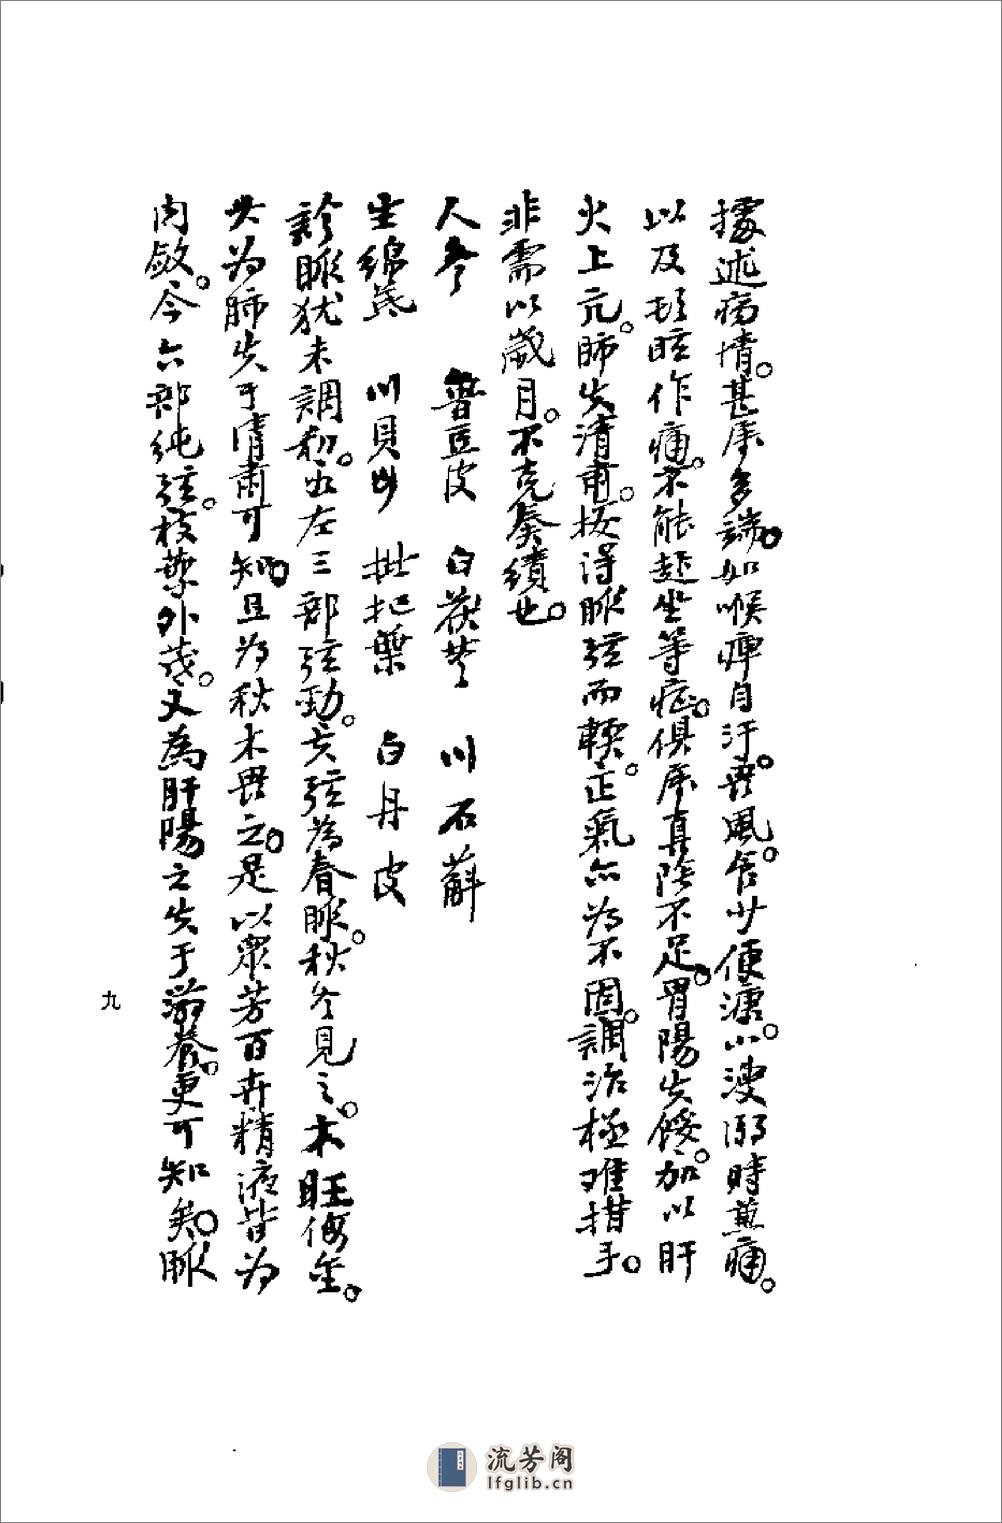 據述病情。甚屬多端。如喉痺自汗。畏風。食少便溏。小溲溺時莖痛。
以及頭眩作痛。不能起坐等症。俱屬真陰不足。胃陽失餒。加以肝
火上亢。肺失清肅。按得脈弦而輭。正氣亦為不固。調治極难措手。
非需以歲月。不克奏績也。
人參 魯豆皮 白茯苓 川石斛
生綿芪 川貝母 枇杷葉 白丹皮
診脈犹未調和。且左三部弦勁。夫弦為春脈。秋令見之。木旺侮金。
共為肺失于清肅可知。且為秋木畏之。是以眾芳百卉精液皆為
内斂。今六部純弦。枝葉外茂。又為肝陽之失于滋養。更可知矣。脈
九
流芳阁
lfglib.cn